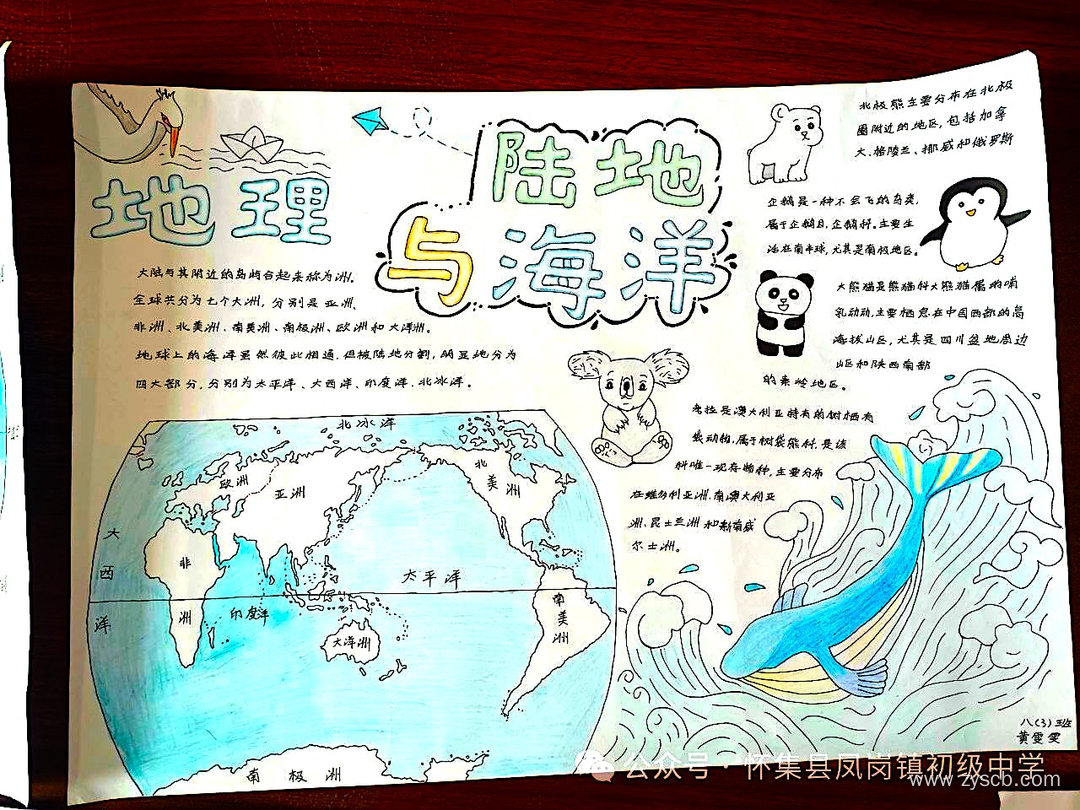 地理
陆地
与海洋
大陆与其附近的岛屿合起来称为洲。
全球共分为七个大洲，分别是亚洲、
非洲、北美洲、南美洲、南极洲、欧洲和大洋洲。
地球上的海洋虽然彼此相通，但被陆地分割，明显地分为
四大部分，分别为太平洋、大西洋、印度洋、北冰洋。
北极熊主要分布在北极
圈附近的地区，包括加拿
大、格陵兰、挪威和俄罗斯
企鹅是一种不会飞的鸟类，
属于企鹅目，企鹅科。主要生
活在南半球，尤其是南极地区。
大熊猫是熊猫科大熊猫属的哺
乳动动，主要栖息在中国西部的高
海拔山区，尤其是四川盆地周边
山区和陕西南部
的秦岭地区。
考拉是澳大利亚特有的树栖有
袋动物，属于树袋熊科，是该
科唯一现存物种，主要分布
在维多利亚洲、南澳大利亚
洲、昆士兰洲和新南威
尔士洲。
北冰洋
欧洲
亚洲
北美洲
大西洋
非洲
太平洋
印度洋
大洋洲
南美洲
南极洲
八(3)班
黄雯雯
公众号·怀集县凤岗镇初级中学
www.zyscb.com